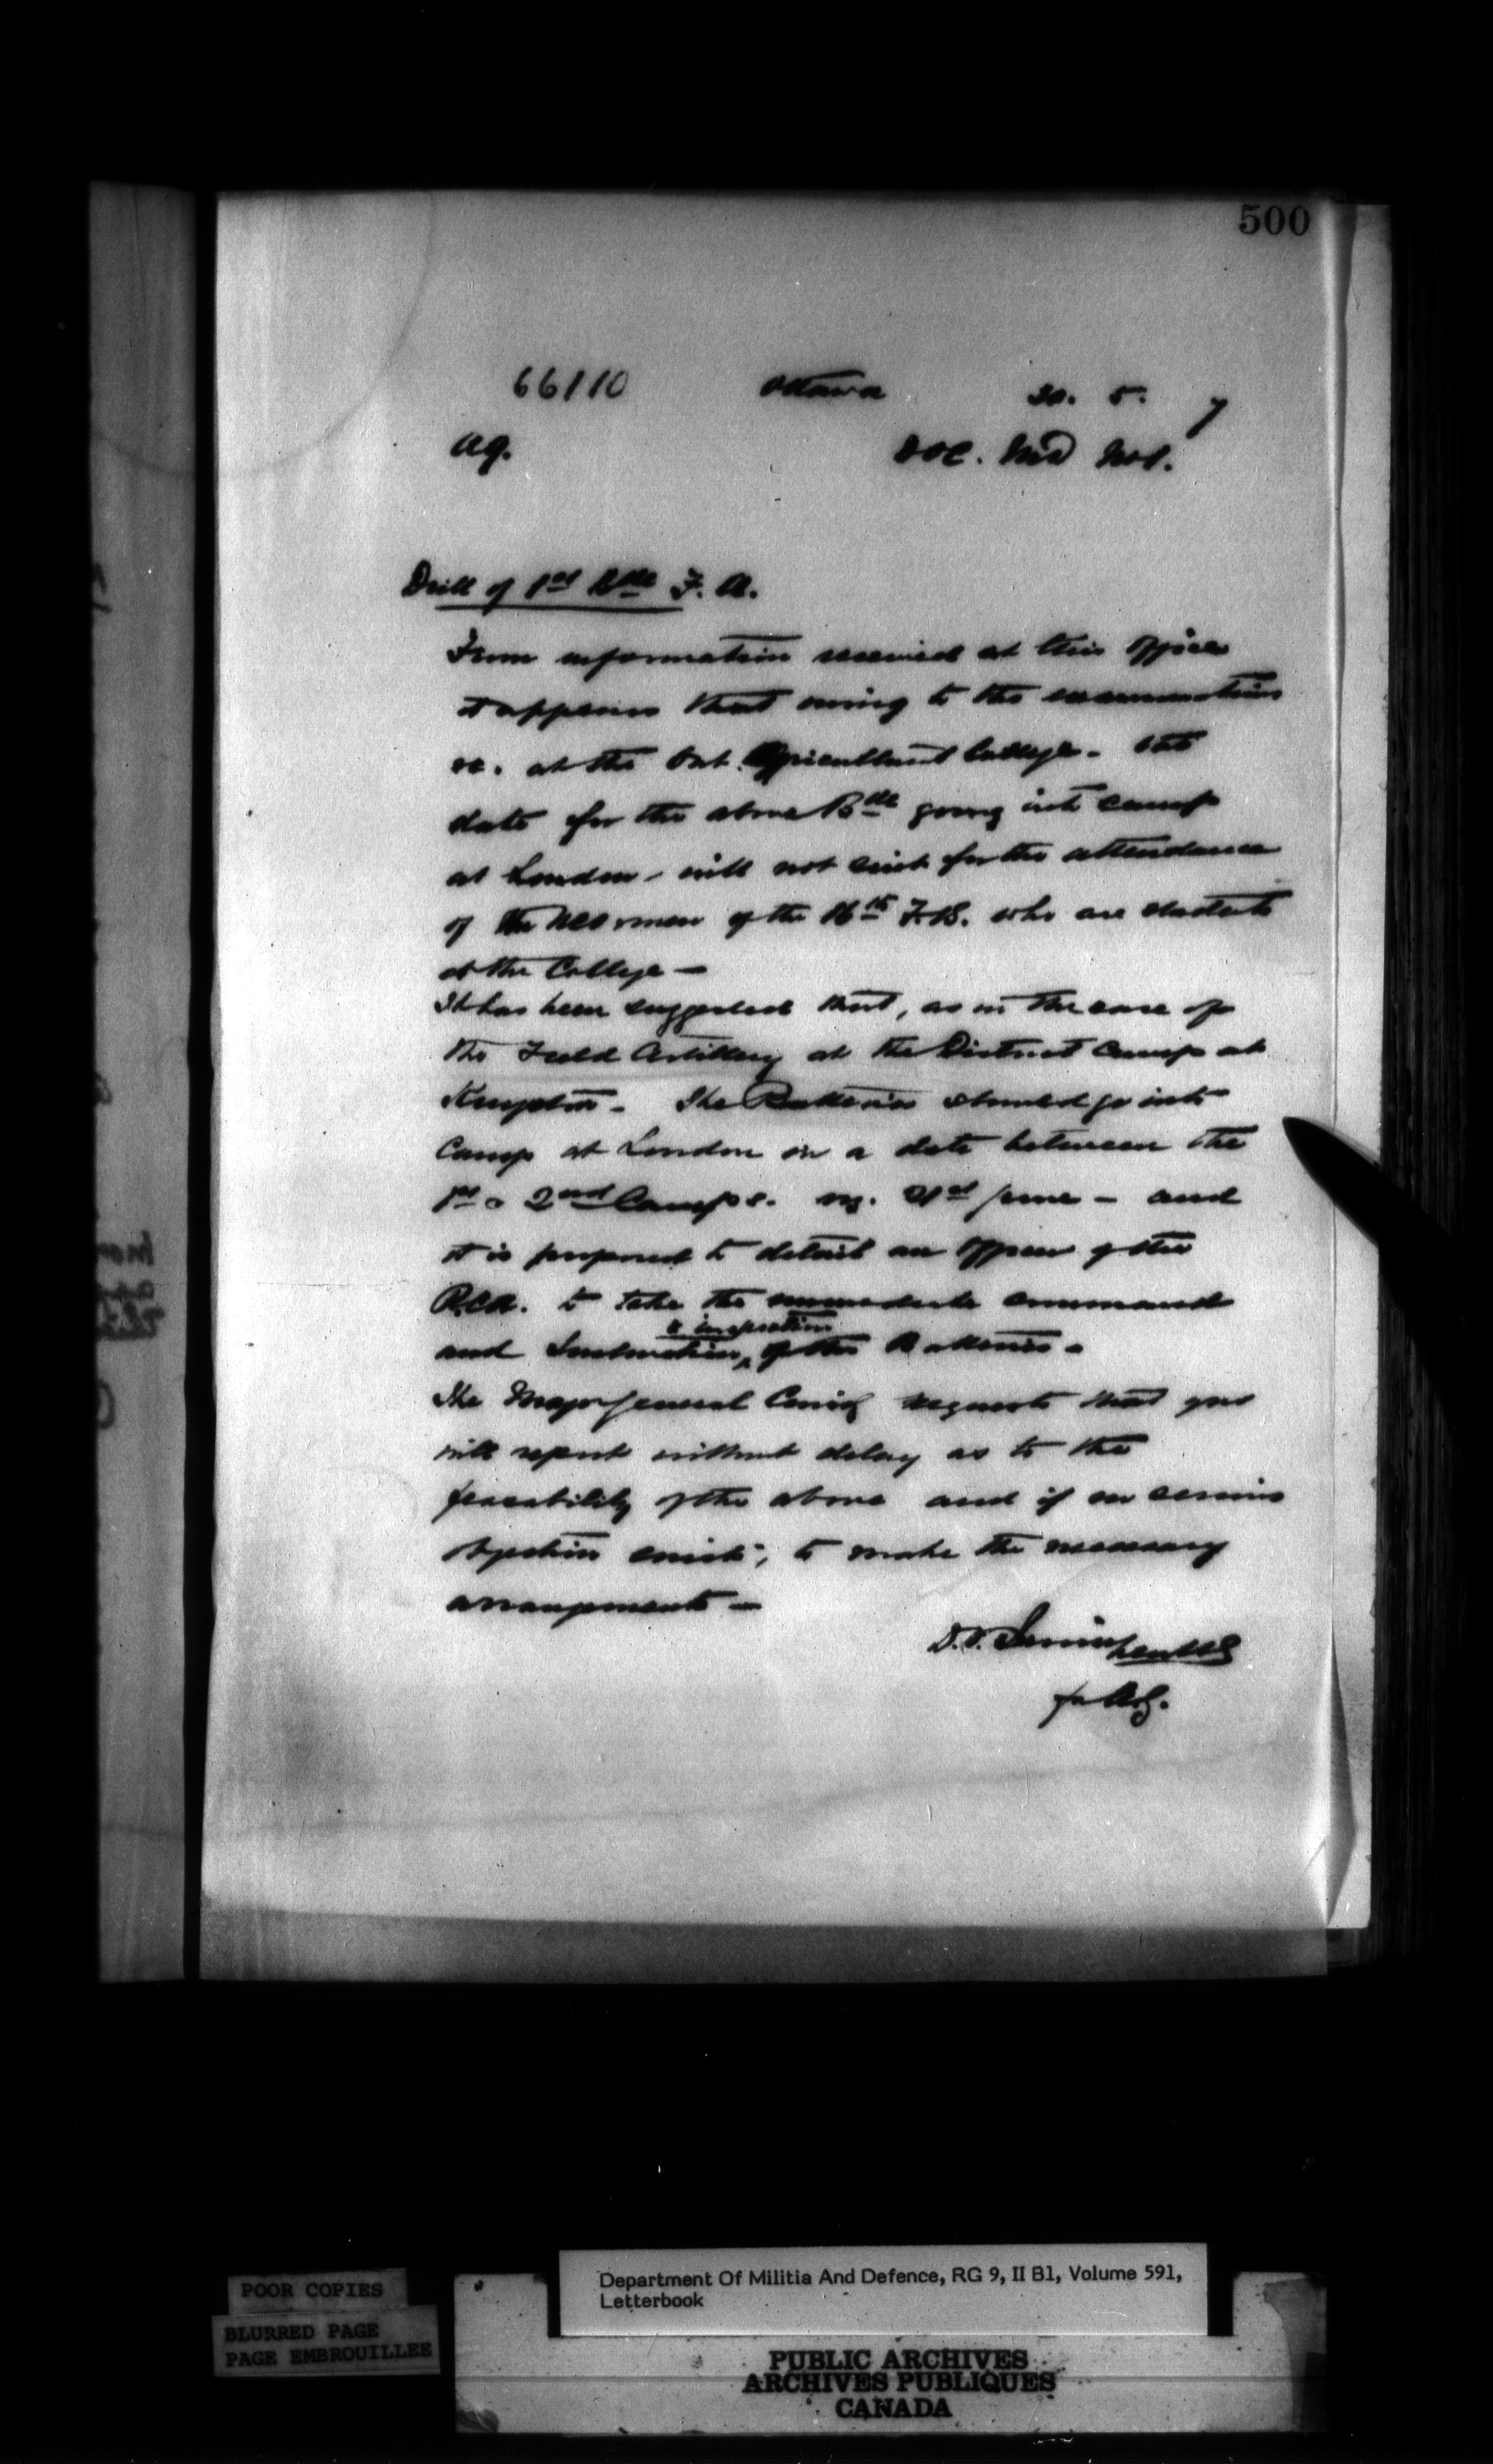 500
66110 Ottawa 30. 5. 7
AG. DOC. MD No 1.
Drill of 1st Bde F. A.
From information received at this Office
it appears that owing to the examinations
&c. at the Ont. Agricultural College - the
date for the above Bde going into camp
at London - will not suit for the attendance
of the NCO & men of the 16th F.B. who are students
at the College -
It has been suggested that, as in the case of
the Field Artillery at the District Camp at
Kingston - The Batteries should go into
Camp at London on a date between the
1st & 2nd Camps. viz. 21st June - and
it is proposed to detail an Officer of the
RCA. to take the immediate command
& inspection
and Instruction of the Batteries -
The Major General Comdg requests that you
will report without delay as to the
feasability of the above and if no serious
objection exists, to make the necessary
arrangements -
D.
for A.G.
Department Of Militia And Defence, RG 9, II B1, Volume 591,
Letterbook
POOR COPIES
BLURRED PAGE
PAGE EMBROUILLEE
PUBLIC ARCHIVES
ARCHIVES PUBLIQUES
CANADA